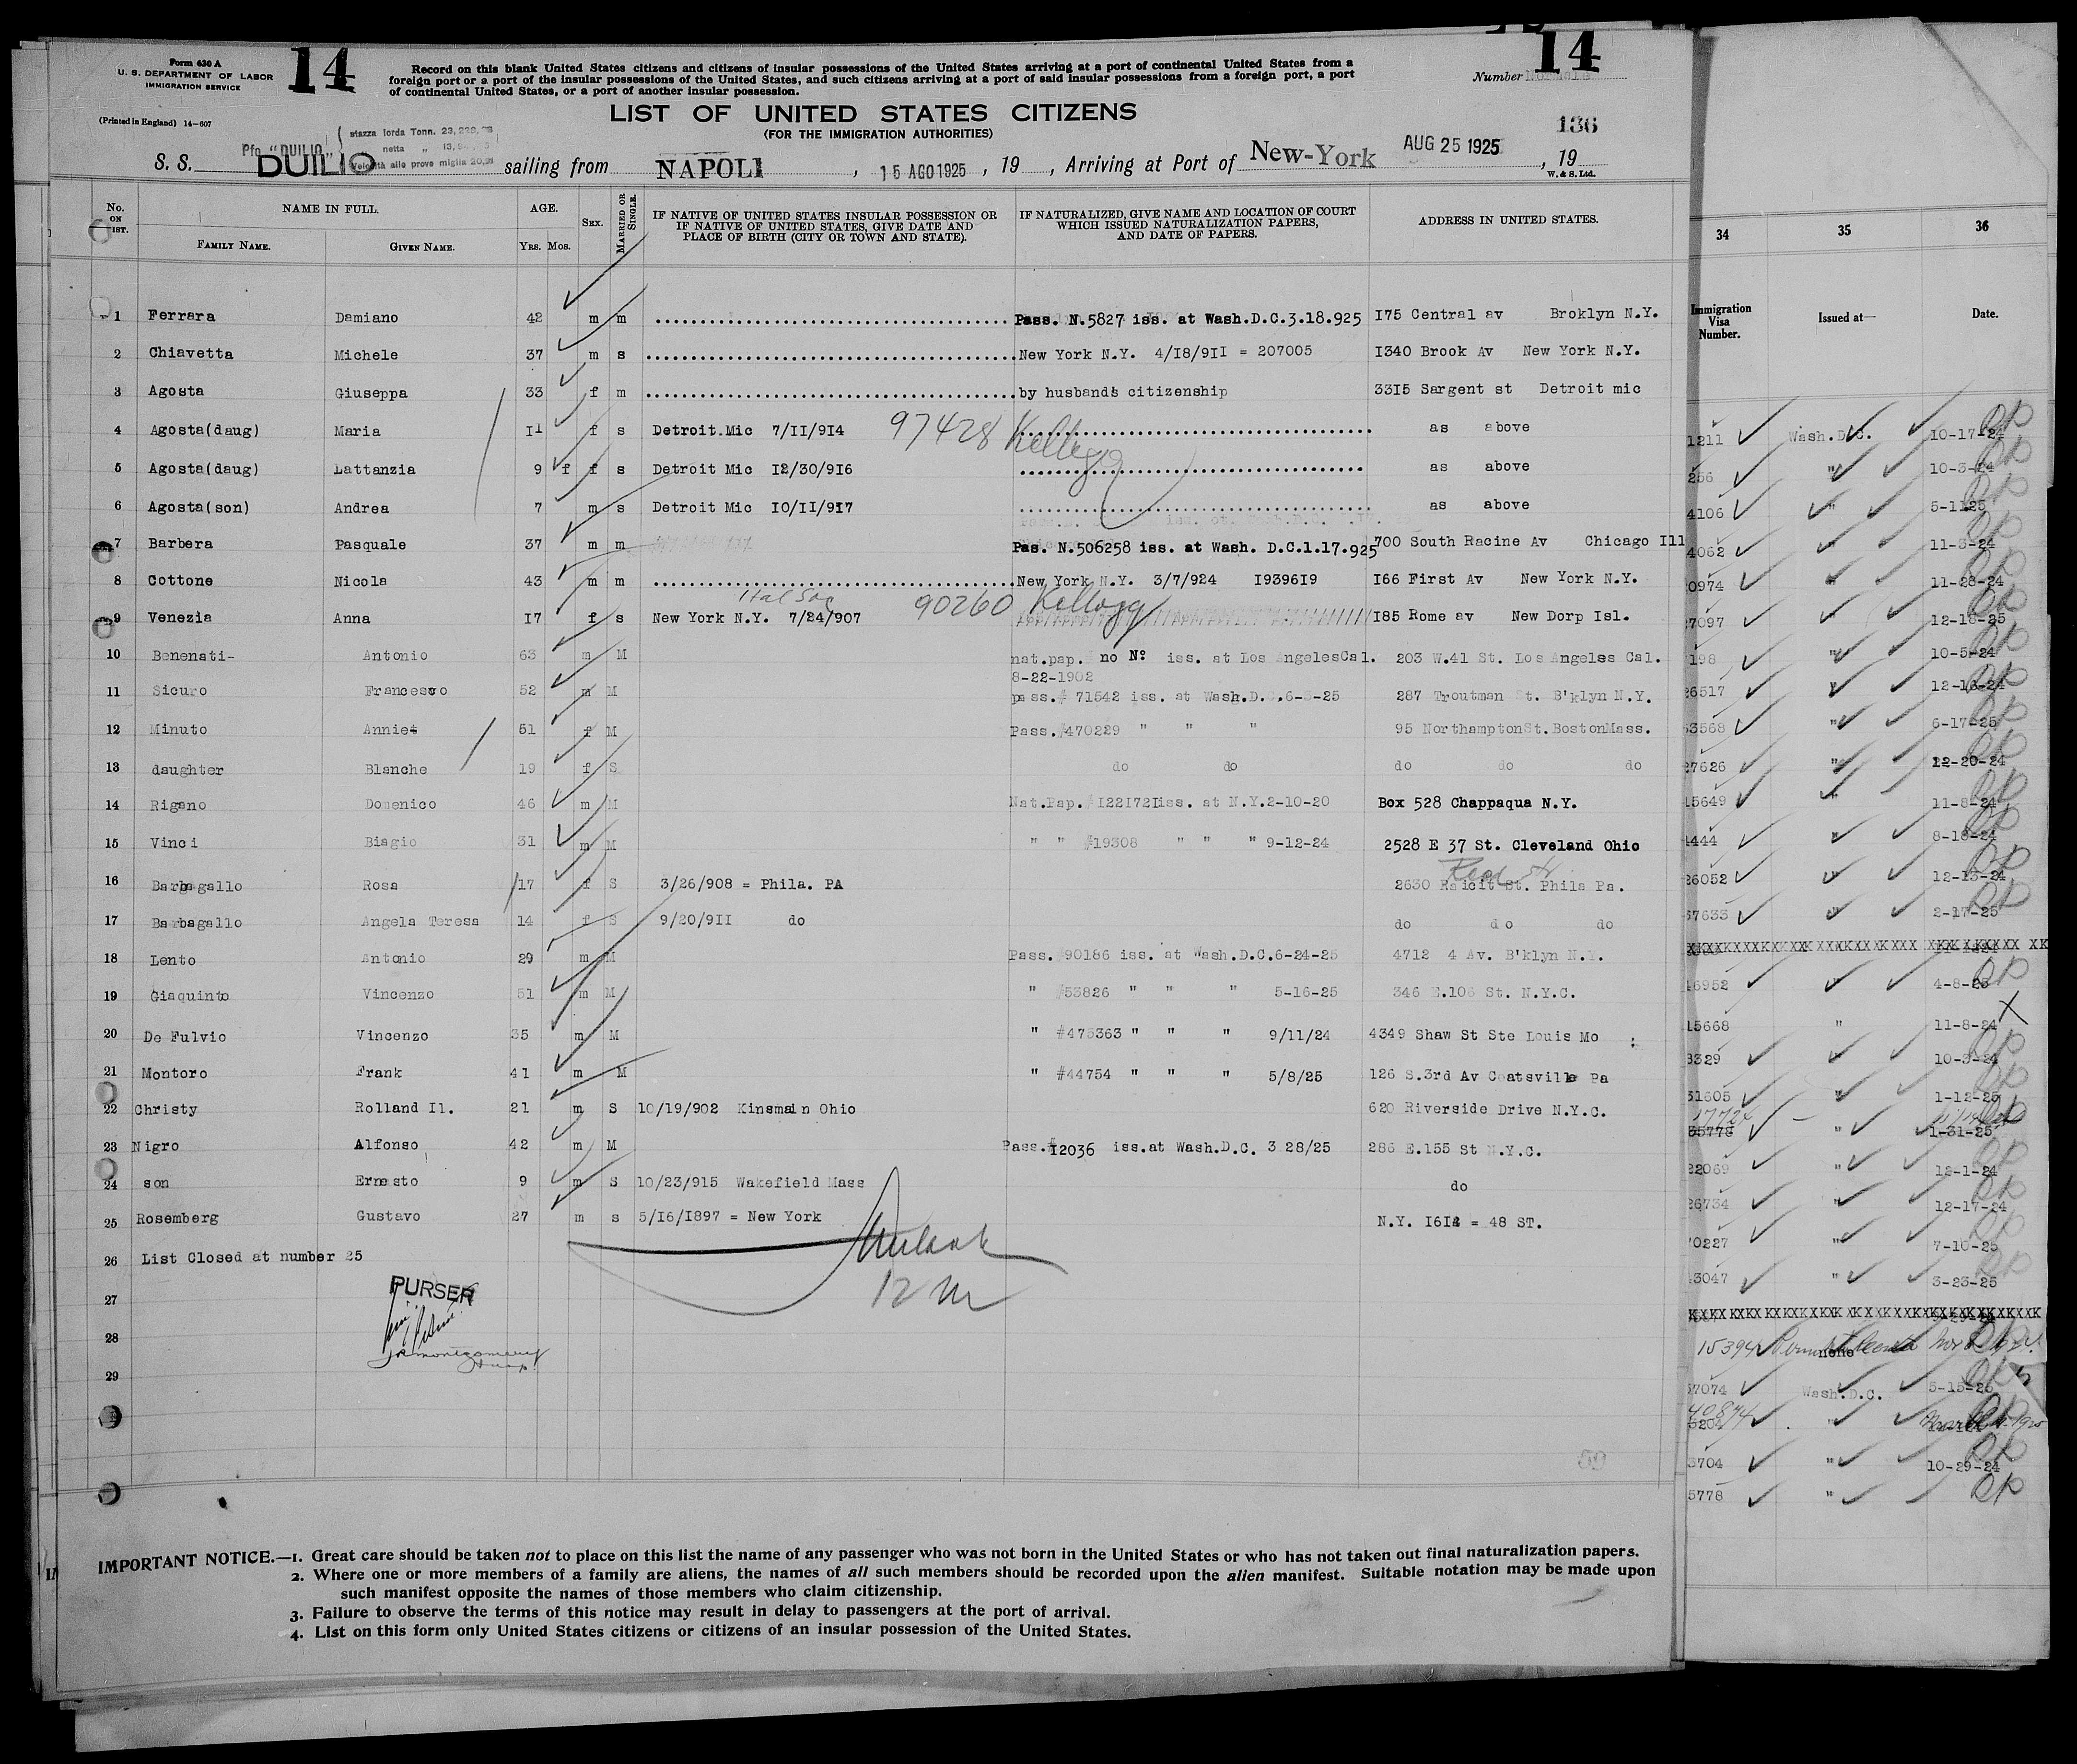 Form 630 A
U. S. DEPARTMENT OF LABOR
IMMIGRATION SERVICE
14
Record on this blank United States citizens and citizens of insular possessions of the United States arriving at a port of continental United States from a
foreign port or a port of the insular possessions of the United States, and such citizens arriving at a port of said insular possessions from a foreign port, a port
of continental United States, or a port of another insular possession.
Number
14
(Printed in England) 14-607
LIST OF UNITED STATES CITIZENS
(FOR THE IMMIGRATION AUTHORITIES)
136
Pfo "DUILIO"
stazza lorda Tonn.
netta "
Velocità alle prove miglia
S. S. DUILIO sailing from NAPOLI, 15 AGO 1925, 19 , Arriving at Port of New-York AUG 25 1925, 19
W. & S. Ltd.
No. ON LIST. NAME IN FULL. AGE. SEX. MARRIED OR SINGLE. IF NATIVE OF UNITED STATES INSULAR POSSESSION OR IF NATIVE OF UNITED STATES, GIVE DATE AND PLACE OF BIRTH (CITY OR TOWN AND STATE). IF NATURALIZED, GIVE NAME AND LOCATION OF COURT WHICH ISSUED NATURALIZATION PAPERS, AND DATE OF PAPERS. ADDRESS IN UNITED STATES.
FAMILY NAME. GIVEN NAME. YRS. MOS.
1 Ferrara Damiano 42 m m Pass. N.5827 iss. at Wash.D.C.3.18.925 I75 Central av Broklyn N.Y.
2 Chiavetta Michele 37 m s New York N.Y. 4/I8/9II = 207005 I340 Brook Av New York N.Y.
3 Agosta Giuseppa 33 f m by husband's citizenship 33I5 Sargent st Detroit mic
4 Agosta(daug) Maria II f s Detroit.Mic 7/II/9I4 97428 Kellogg as above
5 Agosta(daug) Lattanzia 9 f f s Detroit Mic I2/30/9I6 as above
6 Agosta(son) Andrea 7 m s Detroit Mic IO/II/9I7 as above
7 Barbera Pasquale 37 m m Pas. N.506258 iss. at Wash. D.C.1.17.925 700 South Racine Av Chicago Ill
8 Cottone Nicola 43 m m New York N.Y. 3/7/924 I9396I9 I66 First Av New York N.Y.
9 Venezia Anna I7 f s New York N.Y. 7/24/907 90260 Kellogg I85 Rome av New Dorp Isl.
10 Benenati- Antonio 63 m M nat.pap. no Nº iss. at Los AngelesCal. 203 W.41 St. Los Angeles Cal.
8-22-1902
11 Sicuro Francesco 52 m M pass.# 71542 iss. at Wash.D. 287 Troutman St. B'klyn N.Y.
12 Minuto Annie 51 f M Pass.#470229 " " " 95 NorthamptonSt.BostonMass.
13 daughter Blanche 19 f S do do do do do
14 Rigano Domenico 46 m M Nat.Pap. #I22I72I iss. at N.Y.2-10-20 Box 528 Chappaqua N.Y.
15 Vinci Biagio 31 m M " " #19308 " " " 9-12-24 2528 E 37 St. Cleveland Ohio
16 Barbagallo Rosa 17 f S 3/26/908 = Phila. PA 2630 St. Phila Pa.
17 Barbagallo Angela Teresa 14 f S 9/20/9II do do do do
18 Lento Antonio 29 m M Pass. #90186 iss. at Wash.D.C.6-24-25 4712 4 Av. B'klyn N.Y.
19 Giaquinto Vincenzo 51 m M " #53826 " " " 5-16-25 346 E.106 St. N.Y.C.
20 De Fulvio Vincenzo 35 m M " #475363 " " " 9/11/24 4349 Shaw St Ste Louis Mo
21 Montoro Frank 41 m M " #44754 " " " 5/8/25 126 S.3rd Av Coatsville Pa
22 Christy Rolland Il. 21 m S 10/19/902 Kinsmain Ohio 620 Riverside Drive N.Y.C.
23 Nigro Alfonso 42 m M Pass.#I2036 iss.at Wash.D.C. 3 28/25 286 E.155 St N.Y.C.
24 son Ernesto 9 m S 10/23/915 Wakefield Mass do
25 Rosemberg Gustavo 27 m s 5/I6/I897 = New York N.Y. I6I2 = 48 ST.
26 List Closed at number 25
27
28
29
PURSER
12 M
IMPORTANT NOTICE.—1. Great care should be taken not to place on this list the name of any passenger who was not born in the United States or who has not taken out final naturalization papers.
2. Where one or more members of a family are aliens, the names of all such members should be recorded upon the alien manifest. Suitable notation may be made upon
such manifest opposite the names of those members who claim citizenship.
3. Failure to observe the terms of this notice may result in delay to passengers at the port of arrival.
4. List on this form only United States citizens or citizens of an insular possession of the United States.
34 35 36
Immigration Visa Number. Issued at— Date.
1211 Wash.D.C. 10-17-24
256 " 10-3-24
4106 " 5-1-25
4062 " 11-3-24
0974 " 11-28-24
7097 " 12-18-25
198 " 10-5-24
26517 " 12-16-24
53568 " 6-17-25
27626 " 12-20-24
15649 " 11-8-24
4444 " 8-18-24
26052 " 12-13-24
37633 " 2-17-25
16952 " 4-8-25
15668 " 11-8-24
3329 " 10-3-24
31605 " 1-12-25
17724
35778 " 1-31-25
22069 " 12-1-24
26734 " 12-17-24
70227 " 7-10-25
43047 " 3-23-25
15394
none
57074 Wash.D.C. 5-15-25
40874
3704 " 10-29-24
5778 "